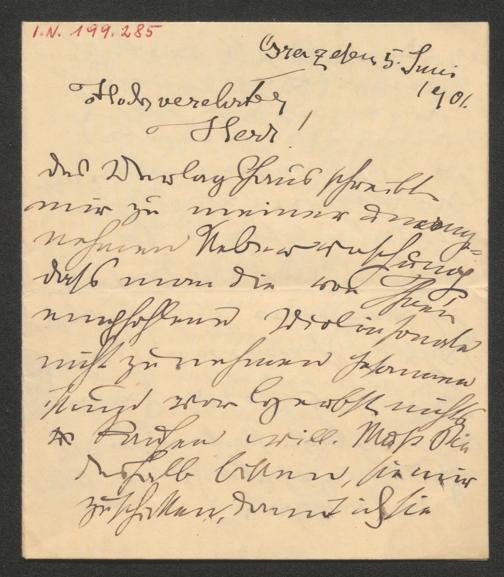 I.N. 199.285
Graz den 5. Juni
1901.
Hochverehrter
Herr!
das Verlagshaus schreibt
mir zu meiner unange=
nehmen Ueberraschung
daß man die von Ihnen
empfohlene Violinsonate
nicht zu nehmen
und vor Herbst nichts
will. Muß Sie
deshalb bitten, sie mir
zu schicken, damit ich sie